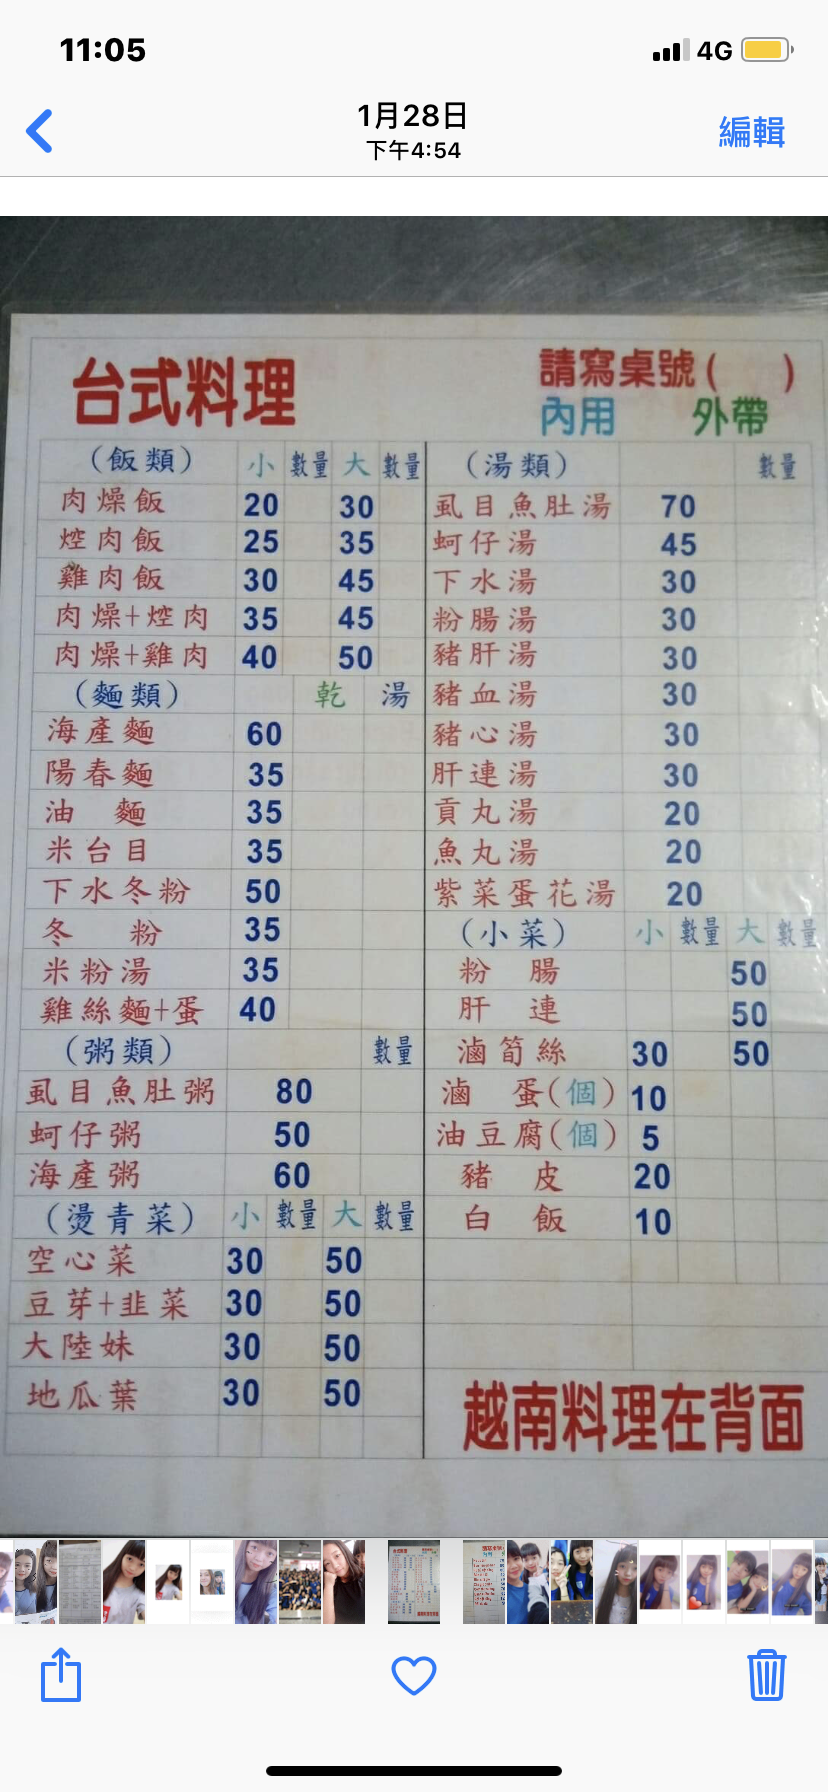 11:05
4G
1月28日
下午4:54
編輯
台式料理
請寫桌號( )
內用 外帶
(飯類) 小 數量 大 數量
肉燥飯 20 30
焢肉飯 25 35
雞肉飯 30 45
肉燥+焢肉 35 45
肉燥+雞肉 40 50
(麵類) 乾 湯
海產麵 60
陽春麵 35
油 麵 35
米台目 35
下水冬粉 50
冬 粉 35
米粉湯 35
雞絲麵+蛋 40
(粥類) 數量
虱目魚肚粥 80
蚵仔粥 50
海產粥 60
(燙青菜) 小 數量 大 數量
空心菜 30 50
豆芽+韭菜 30 50
大陸妹 30 50
地瓜葉 30 50
(湯類) 數量
虱目魚肚湯 70
蚵仔湯 45
下水湯 30
粉腸湯 30
豬肝湯 30
豬血湯 30
豬心湯 30
肝連湯 30
貢丸湯 20
魚丸湯 20
紫菜蛋花湯 20
(小菜) 小 數量 大 數量
粉 腸 50
肝 連 50
滷筍絲 30 50
滷 蛋(個) 10
油豆腐(個) 5
豬 皮 20
白 飯 10
越南料理在背面